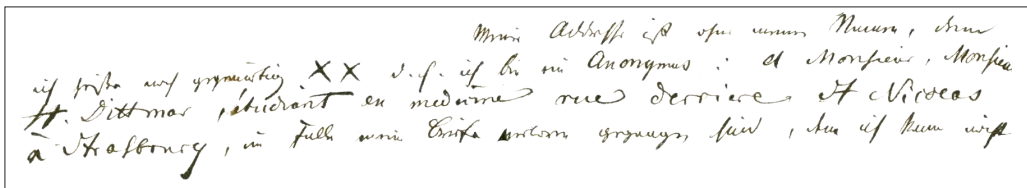 Meine Addresse ist ohne meinen Namen, denn
ich heiße noch gegenwärtig XX d. h. ich bin ein Anonymus: à Monsieur, Monsieur
H. Dittmar, étudiant en medicine rue derriere St Nicolas
à Strasbourg, im Falle meine Briefe verloren gegangen sind, denn ich kann nicht